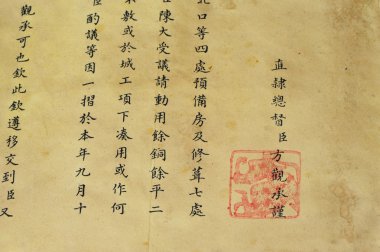 直隸總督臣方觀承謹
北口等四處預備房及修葺七處
任陳大受議請動用餘銅餘平二
求敷或於城工項下凑用或作何
臣酌議等因一摺於本年九月十
觀承可也欽此欽遵移交到臣又